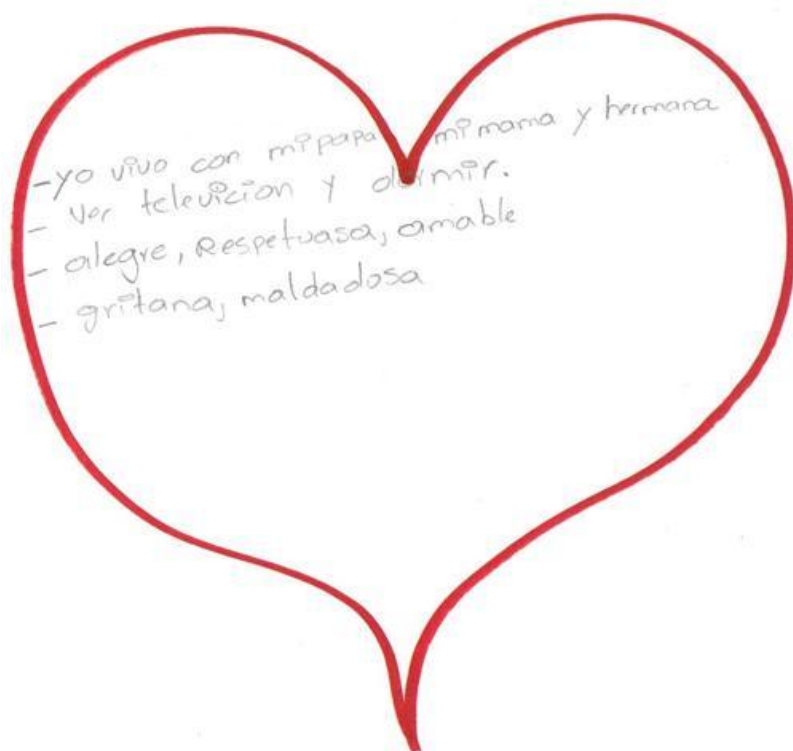 - yo vivo con mi papa mi mama y hermana
- Ver televicion y dormir.
- alegre, Respetuasa, amable
- gritana, maldadosa